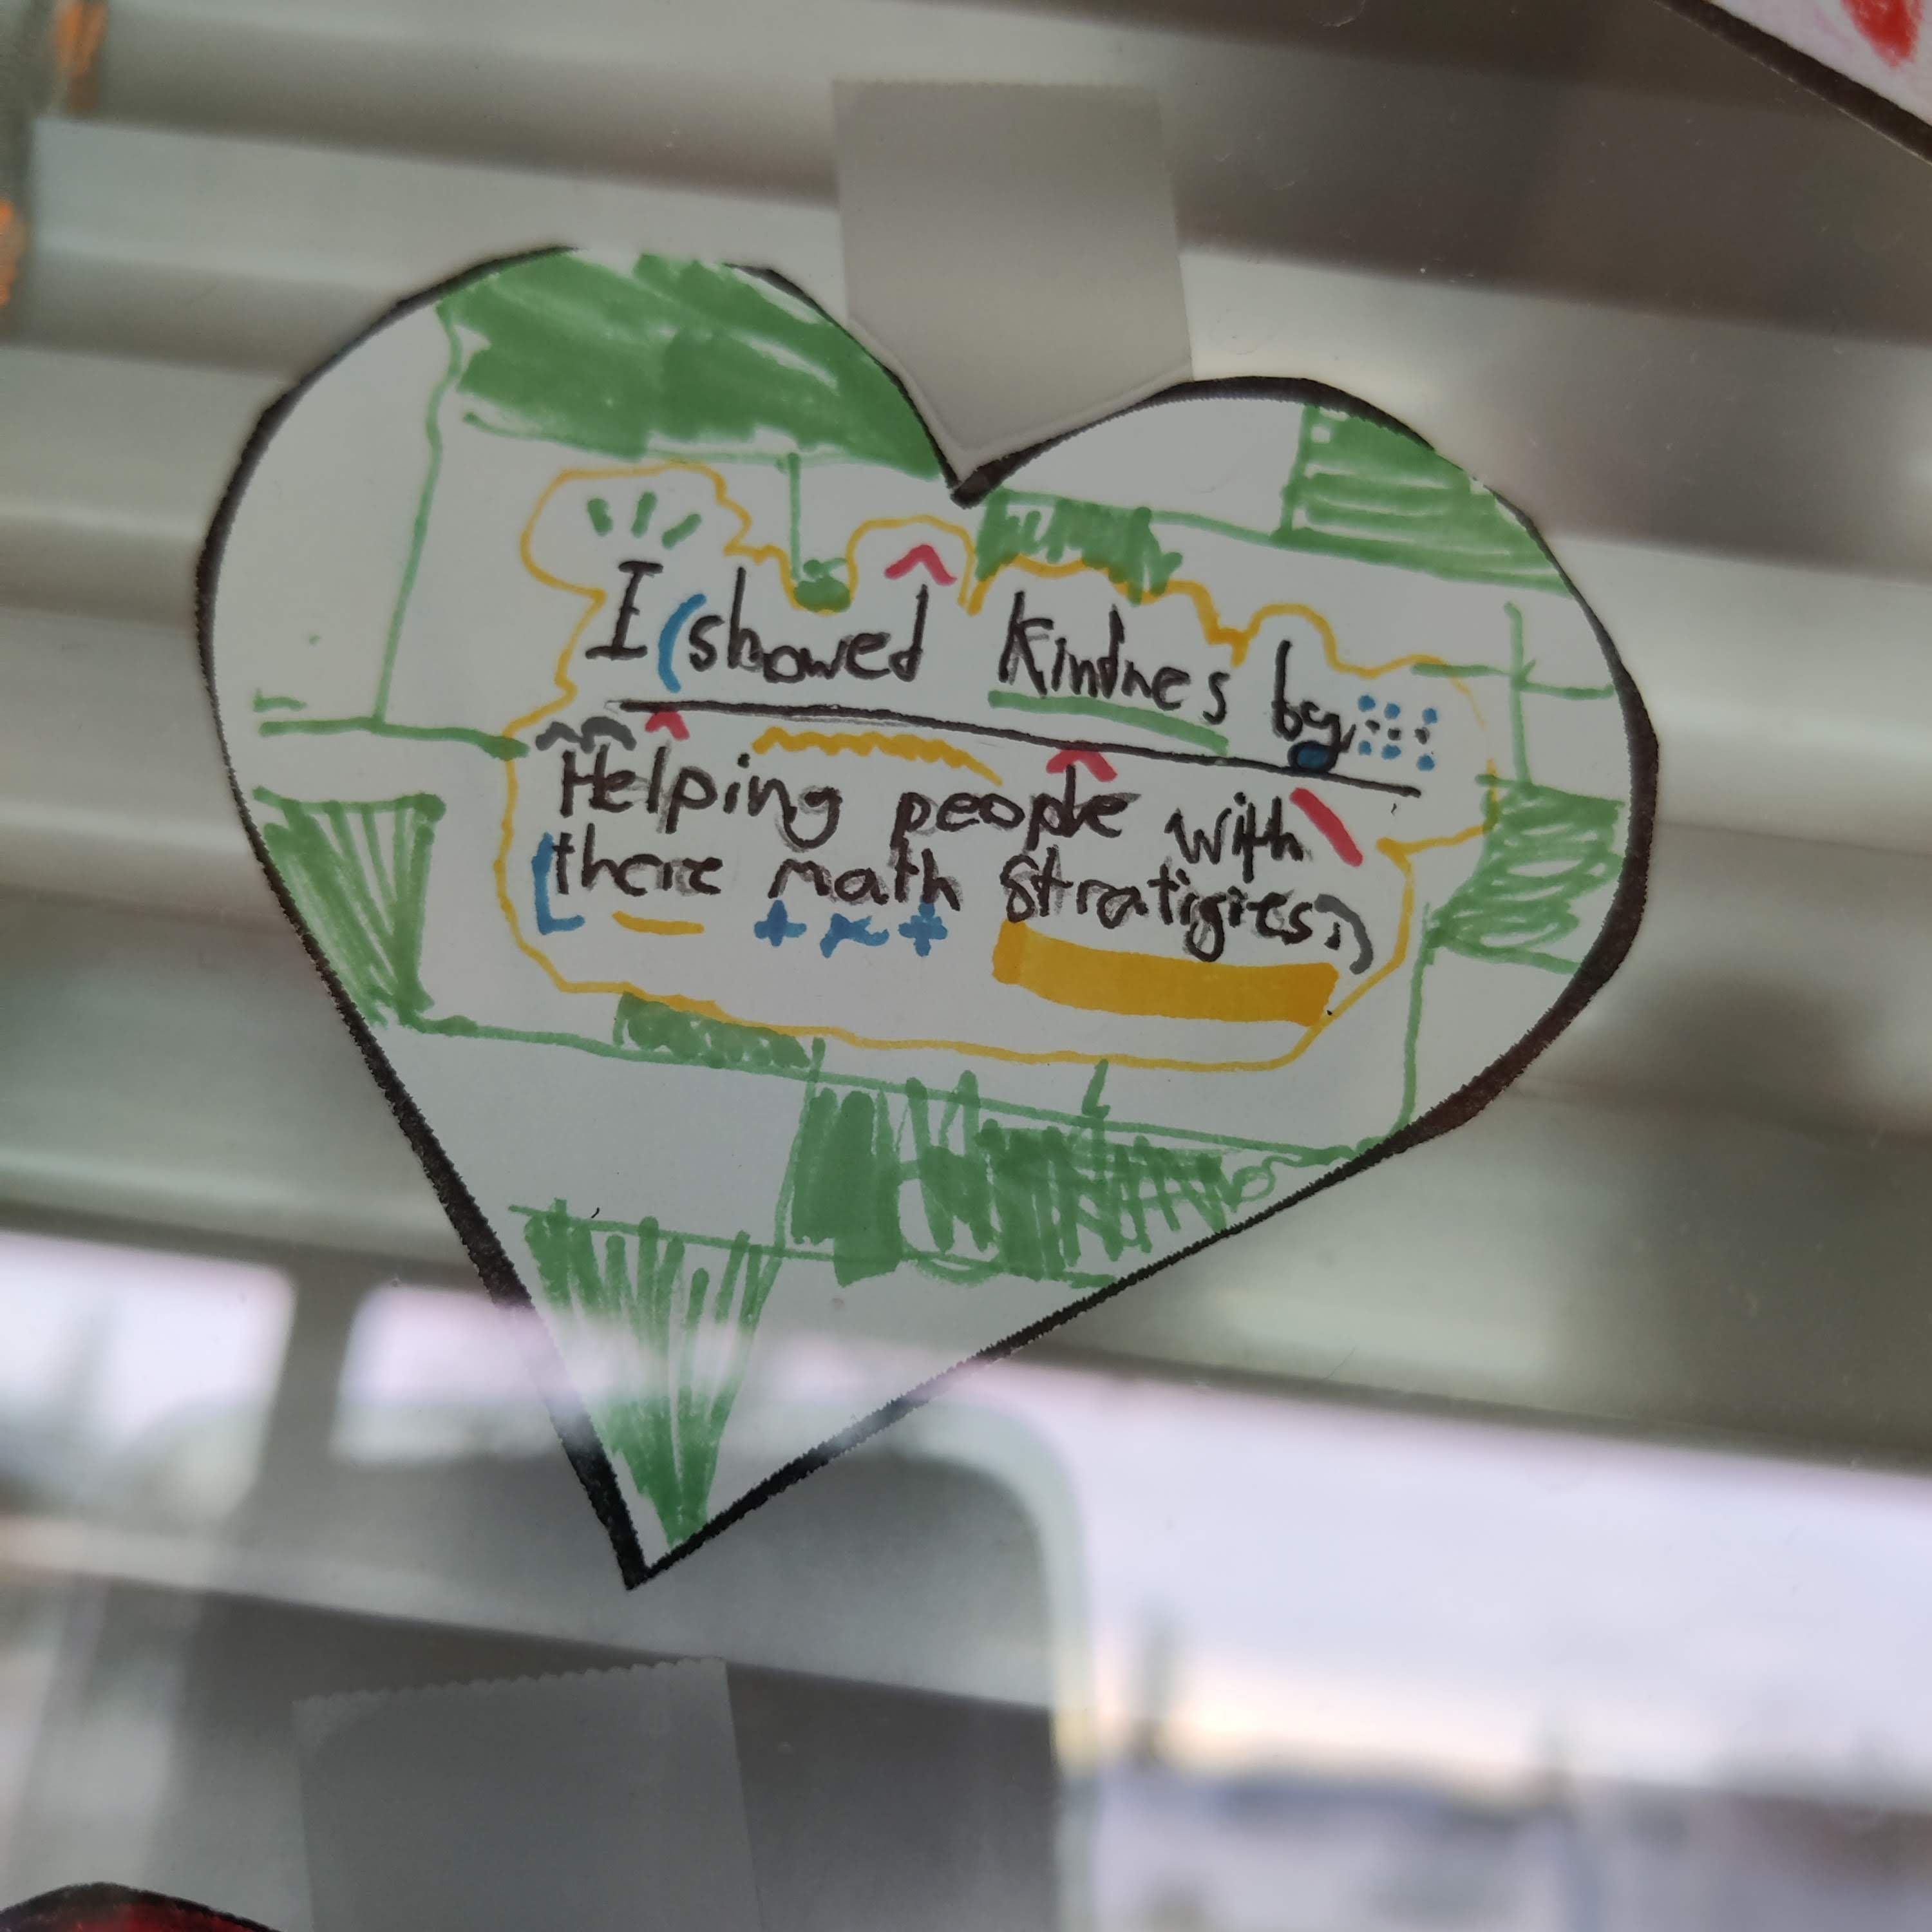 I showed Kindnes by
Helping people with
there math stratigies.